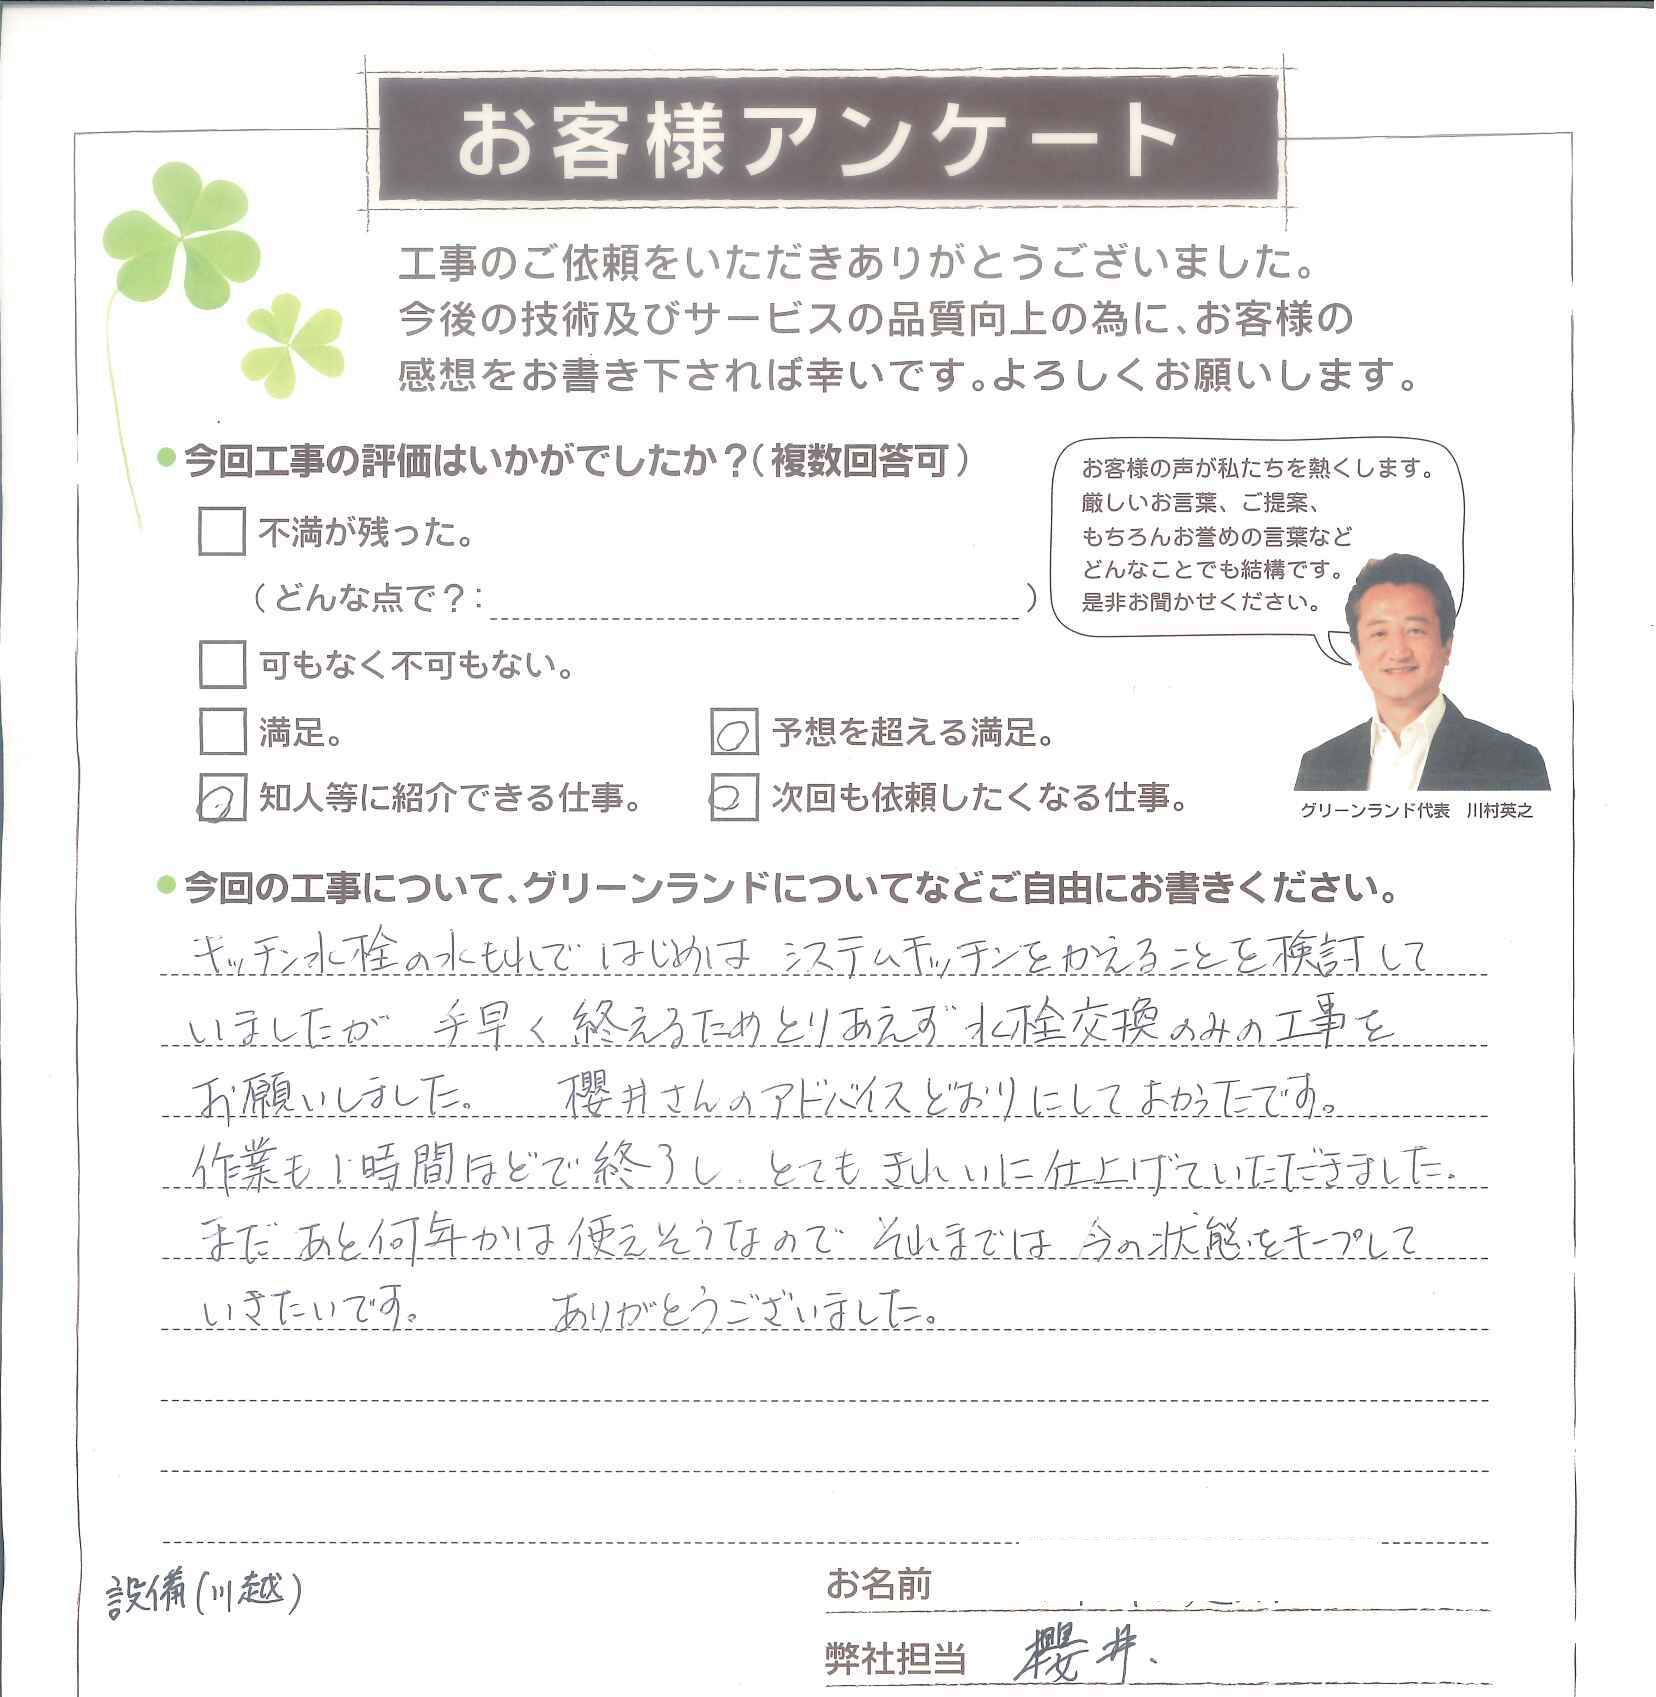 お客様アンケート
工事のご依頼をいただきありがとうございました。
今後の技術及びサービスの品質向上の為に、お客様の
感想をお書き下されば幸いです。よろしくお願いします。
●今回工事の評価はいかがでしたか？（複数回答可）
不満が残った。
（どんな点で？：　）
可もなく不可もない。
満足。
予想を超える満足。
知人等に紹介できる仕事。
次回も依頼したくなる仕事。
お客様の声が私たちを熱くします。
厳しいお言葉、ご提案、
もちろんお誉めの言葉など
どんなことでも結構です。
是非お聞かせください。
グリーンランド代表　川村英之
●今回の工事について、グリーンランドについてなどご自由にお書きください。
キッチン水栓の水もれで はじめは システムキッチンをかえることを検討して
いましたが 手早く終えるためとりあえず水栓交換のみの工事を
お願いしました。 櫻井さんのアドバイスどおりにしてよかったです。
作業も1時間ほどで終了し、とてもきれいに仕上げていただきました。
まだ あと何年かは使えそうなので それまでは 今の状態をキープして
いきたいです。 ありがとうございました。
設備(川越)
お名前
弊社担当 櫻井.